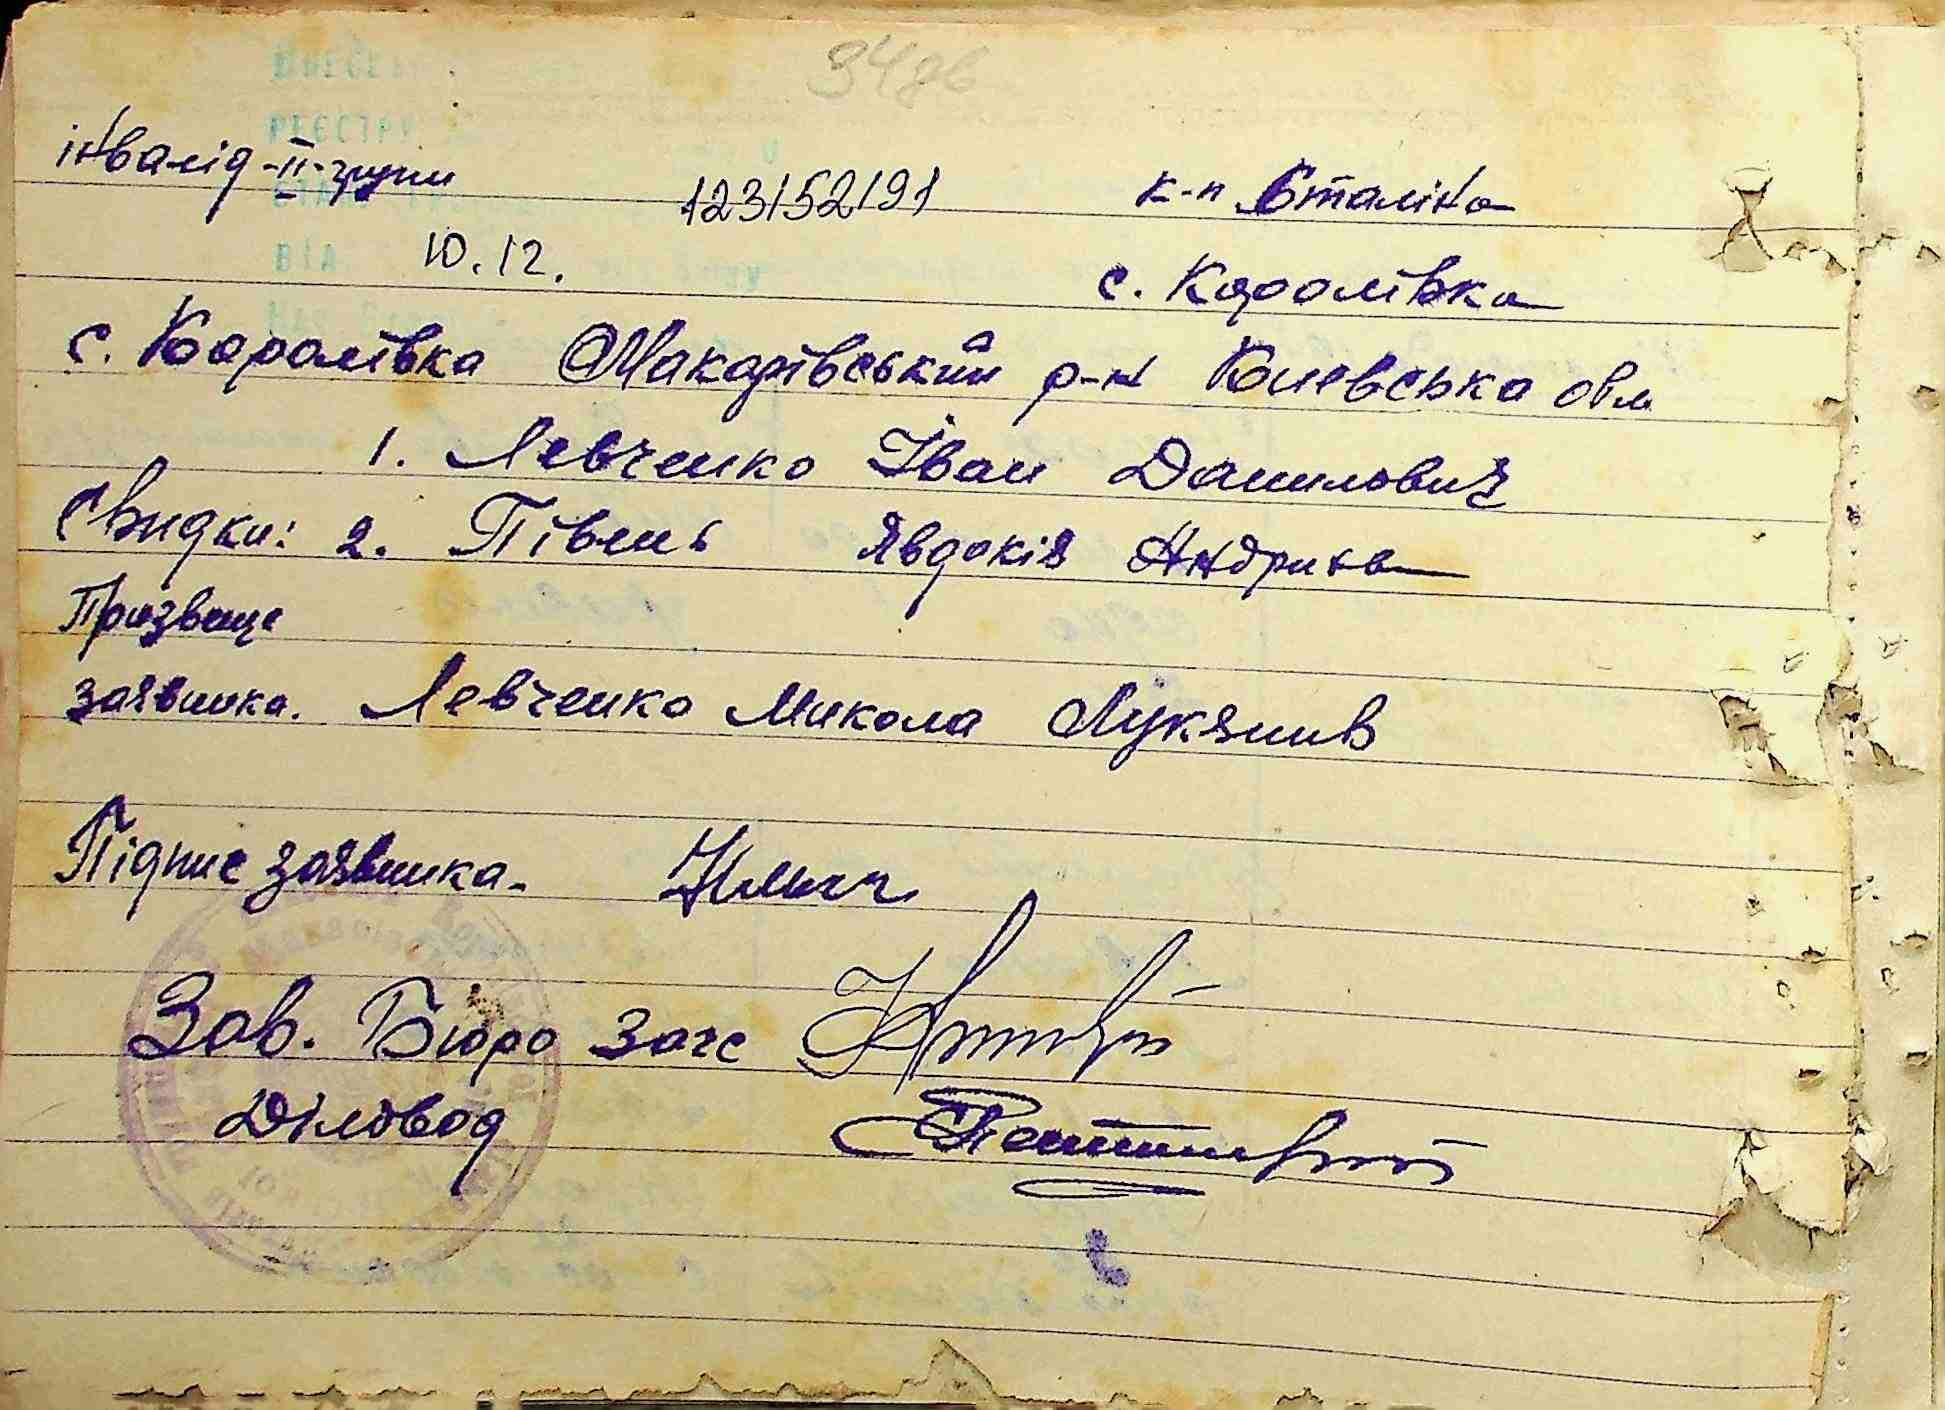 34зв
інвалід -II- групи 123152191 к-п Сталіна
10.12. с. Королівка
с. Королівка Макарівський р-н Киевська обл
1. Левченко Іван Данилович
Свидки: 2. Півень Явдокія Андріїв
Призвище
заявника. Левченко Микола Лукянив
Підпис заявника.
Зав. Бюро Загс
Діловод